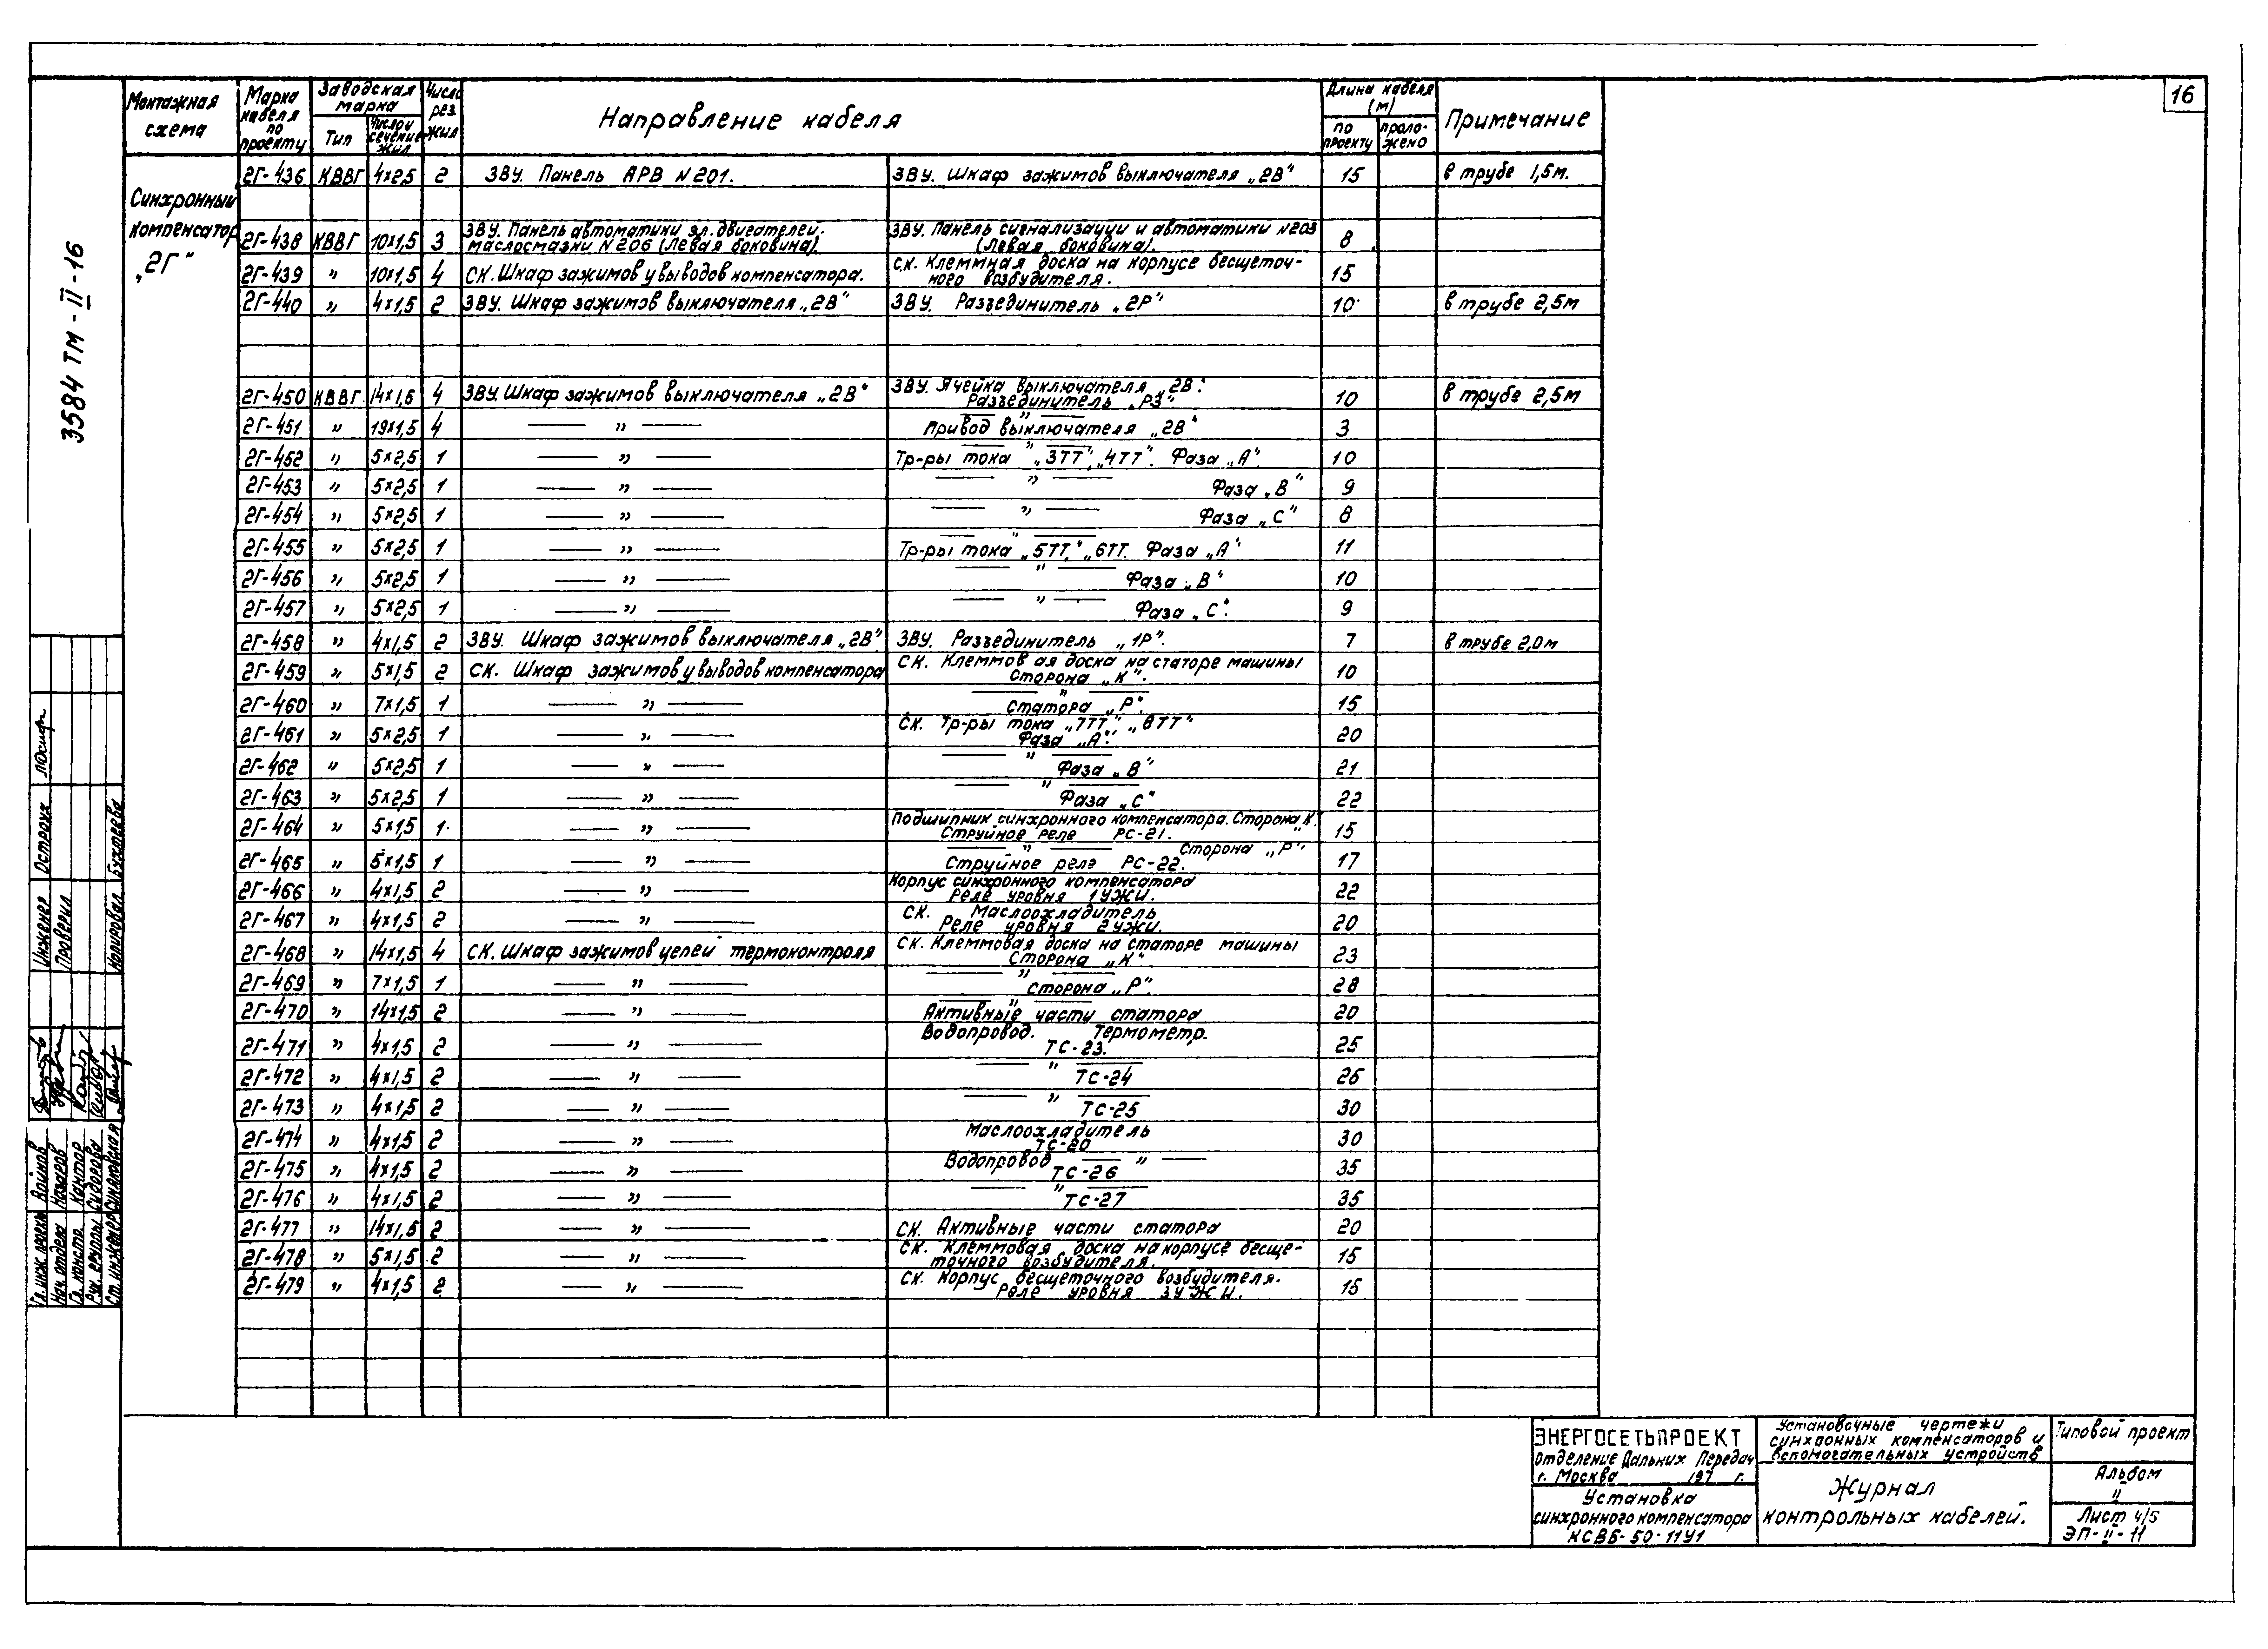 16
3584 ТМ - II - 16
Монтажная схема | Марка кабеля по проекту | Заводская марка | Число рез. жил | Направление кабеля | Длина кабеля (м) | Примечание
Тип | Число и сечение жил | по проекту | проложено
Синхронный
компенсатор
„2Г"
2Г-436 КВВГ 4×2,5 2 ЗВУ. Панель АРВ N201. ЗВУ. Шкаф зажимов выключателя „2В" 15 в трубе 1,5м.
2Г-438 КВВГ 10×1,5 3 ЗВУ. Панель автоматики эл. двигателей. маслосмазки N206 (левая боковина). ЗВУ. Панель сигнализации и автоматики N203 (левая боковина). 8
2Г-439 " 10×1,5 4 СК. Шкаф зажимов у выводов компенсатора. С.К. Клеммная доска на корпусе бесщеточ-
ного возбудителя. 15
2Г-440 " 4×1,5 2 ЗВУ. Шкаф зажимов выключателя „2В" ЗВУ. Разъединитель „2Р" 10 в трубе 2,5м
2Г-450 КВВГ 14×1,5 4 ЗВУ. Шкаф зажимов выключателя „2В" ЗВУ. Ячейка выключателя „2В".
Разъединитель „РЗ". 10 в трубе 2,5м
2Г-451 " 19×1,5 4 — " — — " —
Привод выключателя „2В" 3
2Г-452 " 5×2,5 1 — " — — " —
Тр-ры тока „3ТТ", „4ТТ". Фаза „А". 10
2Г-453 " 5×2,5 1 — " — — " — Фаза „В" 9
2Г-454 " 5×2,5 1 — " — — " — Фаза „С" 8
2Г-455 " 5×2,5 1 — " — — " —
Тр-ры тока „5ТТ", „6ТТ. Фаза „А" 11
2Г-456 " 5×2,5 1 — " — — " — Фаза „В" 10
2Г-457 " 5×2,5 1 — " — — " — Фаза „С". 9
2Г-458 " 4×1,5 2 ЗВУ. Шкаф зажимов выключателя „2В". ЗВУ. Разъединитель „1Р". 7 в трубе 2,0м
2Г-459 " 5×1,5 2 СК. Шкаф зажимов у выводов компенсатора СК. Клеммовая доска на статоре машины
Сторона „К". 10
2Г-460 " 7×1,5 1 — " — — " —
Статора „Р". 15
2Г-461 " 5×2,5 1 — " — СК. Тр-ры тока „7ТТ", „8ТТ"
Фаза „А". 20
2Г-462 " 5×2,5 1 — " — — " — Фаза „В" 21
2Г-463 " 5×2,5 1 — " — — " — Фаза „С" 22
2Г-464 " 5×1,5 1 — " — Подшипник синхронного компенсатора. Сторона „К".
Струйное реле РС-21. 15
2Г-465 " 5×1,5 1 — " — — " — Сторона „Р"
Струйное реле РС-22. 17
2Г-466 " 4×1,5 2 — " — Корпус синхронного компенсатора
Реле уровня 1УЖИ. 22
2Г-467 " 4×1,5 2 — " — СК. Маслоохладитель
Реле уровня 2УЖИ. 20
2Г-468 " 14×1,5 4 СК. Шкаф зажимов цепей термоконтроля СК. Клеммовая доска на статоре машины
Сторона „К" 23
2Г-469 " 7×1,5 1 — " — — " —
сторона „Р". 28
2Г-470 " 14×1,5 2 — " — — " —
Активные части статора 20
2Г-471 " 4×1,5 2 — " — Водопровод. Термометр.
ТС-23. 25
2Г-472 " 4×1,5 2 — " — — " —
ТС-24 26
2Г-473 " 4×1,5 2 — " — — " —
ТС-25 30
2Г-474 " 4×1,5 2 — " — Маслоохладитель
ТС-20 30
2Г-475 " 4×1,5 2 — " — Водопровод — " —
ТС-26 35
2Г-476 " 4×1,5 2 — " — — " —
ТС-27 35
2Г-477 " 14×1,5 2 — " — СК. Активные части статора 20
2Г-478 " 5×1,5 2 — " — СК. Клеммовая доска на корпусе бесще-
точного возбудителя. 15
2Г-479 " 4×1,5 2 — " — СК. Корпус бесщеточного возбудителя.
Реле уровня 3УЖИ. 15
Инженер Остроух
Проверил
Копировал Бухтеева
Гл. инж. проект Войнов
Нач. отдела Назаров
Гл. констр. Кантор
Рук. группы Сидорова
Ст. инженер Синяковская
ЭНЕРГОСЕТЬПРОЕКТ
Отделение Дальних Передач
г. Москва 197 г.
Установка
синхронного компенсатора
КСВБ-50-11У1
Установочные чертежи
синхронных компенсаторов и
вспомогательных устройств
Журнал
контрольных кабелей.
Типовой проект
Альбом
II
Лист 4/5
ЭП-II-11